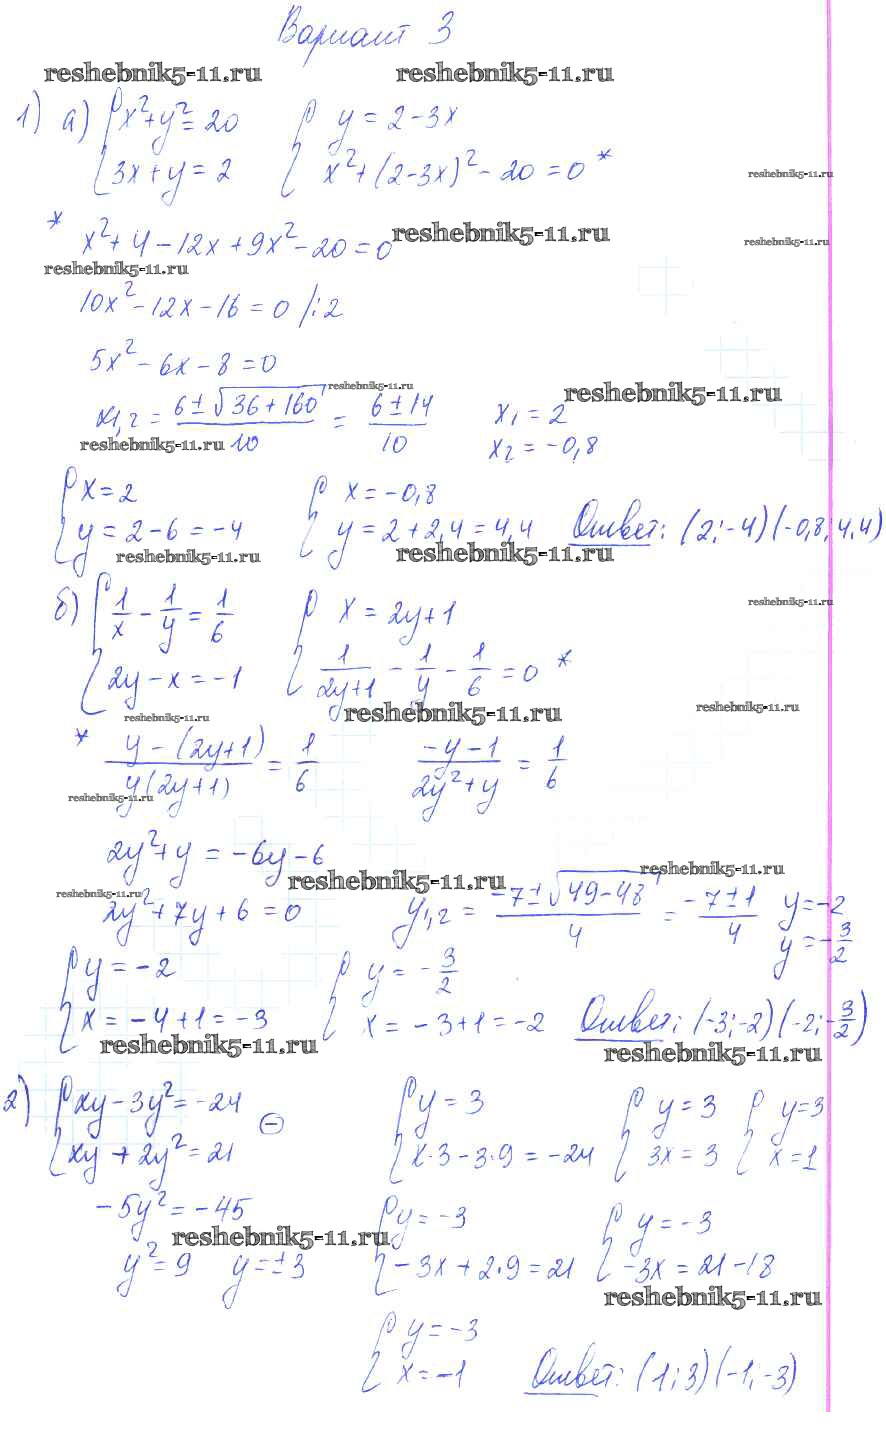 Вариант 3
reshebnik5-11.ru reshebnik5-11.ru
1) а) { x²+y²=20 { y = 2-3x
3x+y=2 x²+(2-3x)²-20=0 *
reshebnik5-11.ru
* x²+4-12x+9x²-20=0 reshebnik5-11.ru reshebnik5-11.ru
reshebnik5-11.ru
10x²-12x-16=0 /:2
5x²-6x-8=0
reshebnik5-11.ru reshebnik5-11.ru
x1,2 = (6±√(36+160))/10 = (6±14)/10 x₁=2
x₂=-0,8
reshebnik5-11.ru
{ x=2 { x=-0,8
y=2-6=-4 y=2+2,4=4,4 Ответ: (2;-4)(-0,8;4,4)
reshebnik5-11.ru reshebnik5-11.ru
б) { 1/x - 1/y = 1/6 { x=2y+1 reshebnik5-11.ru
2y-x=-1 1/(2y+1) - 1/y - 1/6 = 0 *
reshebnik5-11.ru reshebnik5-11.ru reshebnik5-11.ru
* (y-(2y+1))/(y(2y+1)) = 1/6 (-y-1)/(2y²+y) = 1/6
reshebnik5-11.ru
2y²+y=-6y-6
reshebnik5-11.ru reshebnik5-11.ru reshebnik5-11.ru
2y²+7y+6=0 y1,2 = (-7±√(49-48))/4 = (-7±1)/4 y=-2
y=-3/2
{ y=-2 { y=-3/2
x=-4+1=-3 x=-3+1=-2 Ответ: (-3;-2)(-2;-3/2)
reshebnik5-11.ru reshebnik5-11.ru
2) { xy-3y²=-24 ⊖ { y=3 { y=3 { y=3
xy+2y²=21 x·3-3·9=-24 3x=3 x=1
-5y²=-45 { y=-3 { y=-3
reshebnik5-11.ru
y²=9 y=±3 -3x+2·9=21 -3x=21-18
reshebnik5-11.ru
{ y=-3
x=-1 Ответ: (1;3)(-1;-3)